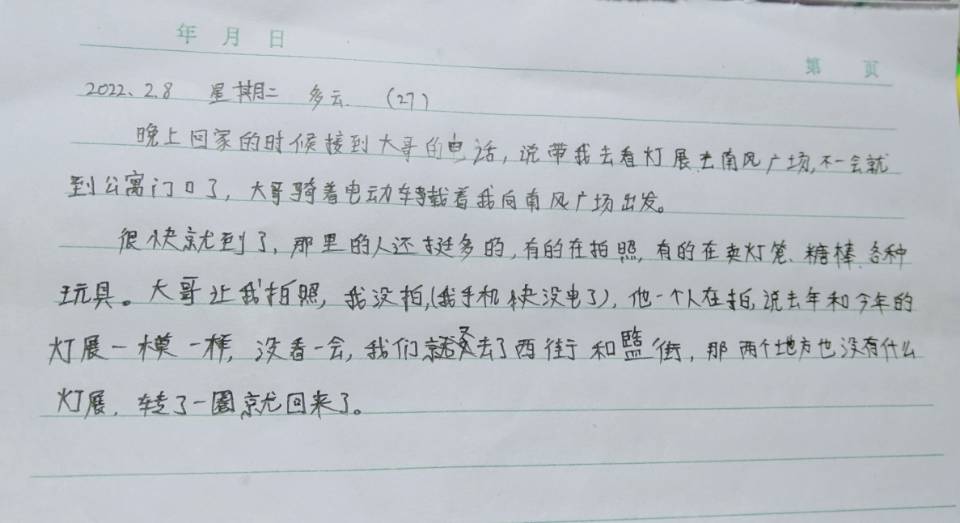 年 月 日
第 页
2022.2.8 星期二 多云 (27)
晚上回家的时候接到大哥的电话,说带我去看灯展去南风广场,不一会就
到公寓门口了,大哥骑着电动车载着我向南风广场出发。
很快就到了,那里的人还挺多的,有的在拍照,有的在卖灯笼、糖棒、各种
玩具。大哥让我拍照,我没拍,(我手机快没电了),他一个人在拍,说去年和今年的
灯展一模一样,没看一会,我们就又去了西街和盬街,那两个地方也没有什么
灯展,转了一圈就回来了。